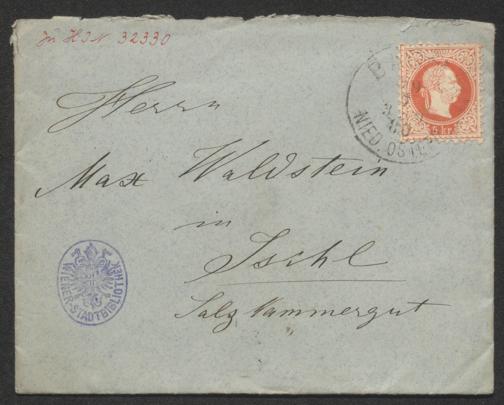 Zu HIN 32330
5 kr.
NIED. ÖST
Herrn
Max Waldstein
in
Ischl
Salzkammergut
WIENER-STADTBIBLIOTHEK